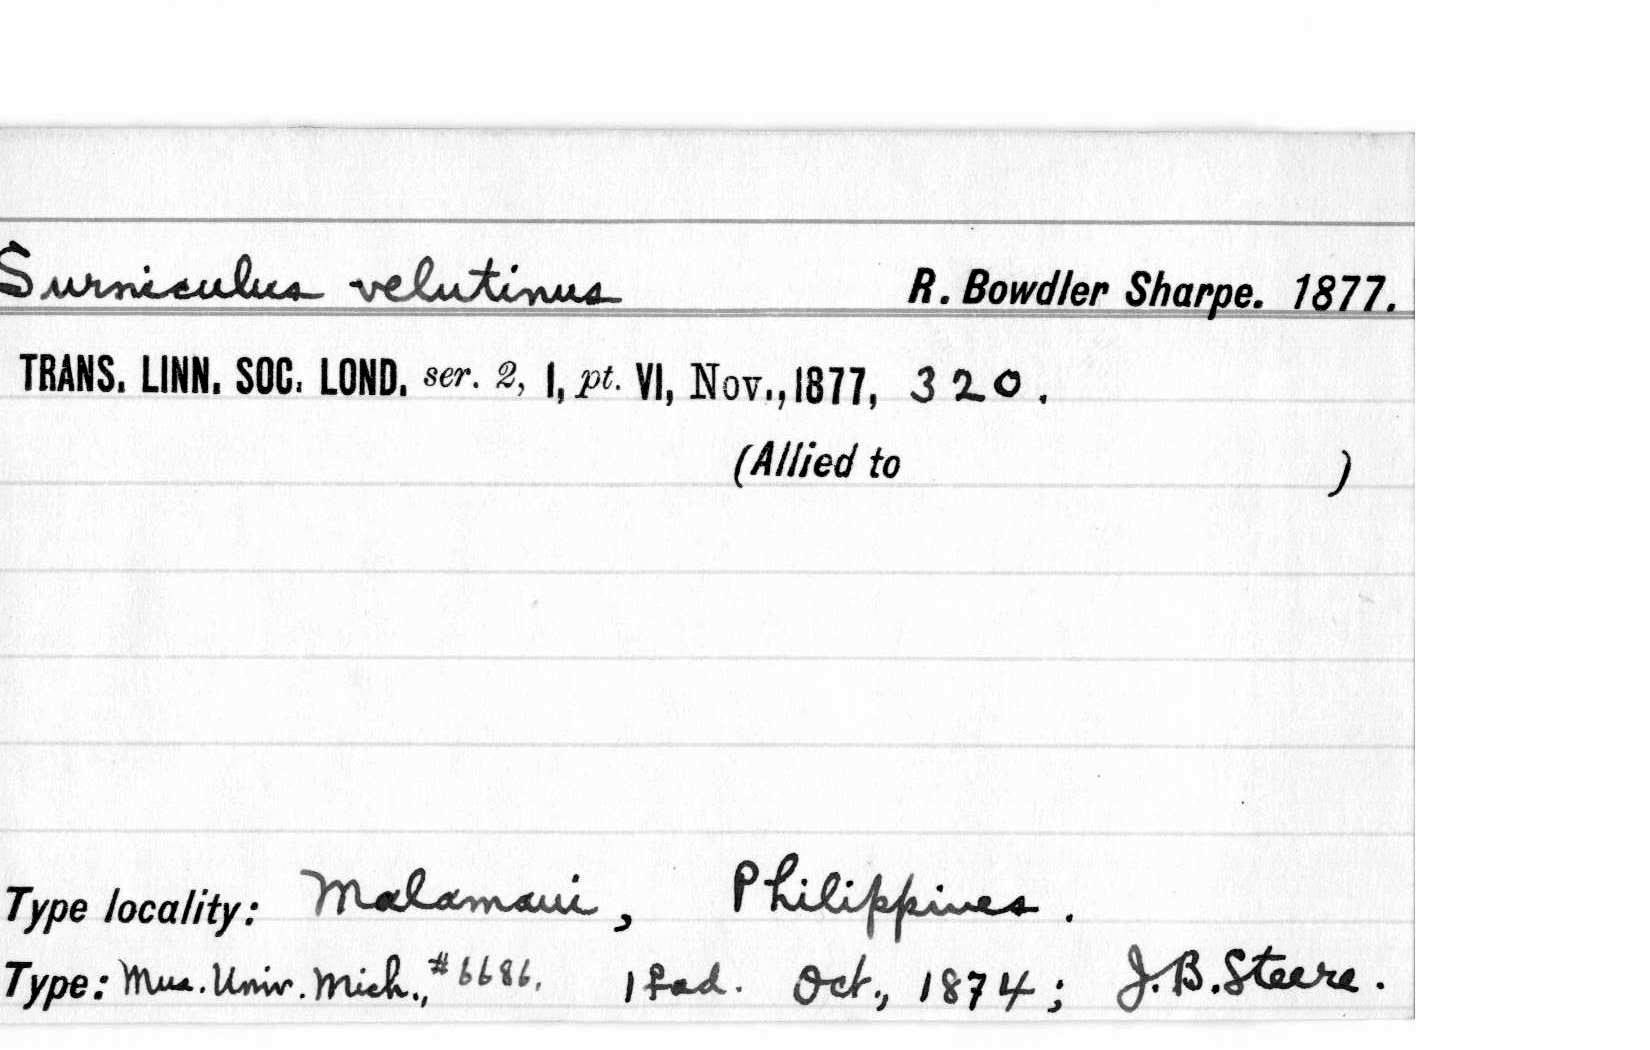 Surniculus velutinus R. Bowdler Sharpe. 1877.
TRANS. LINN. SOC. LOND. ser. 2, I, pt. VI, Nov., 1877, 320.
(Allied to )
Type locality: Malamaui, Philippines.
Type: Mus. Univ. Mich., #6686. 1 ad. Oct., 1874; J.B. Steere.